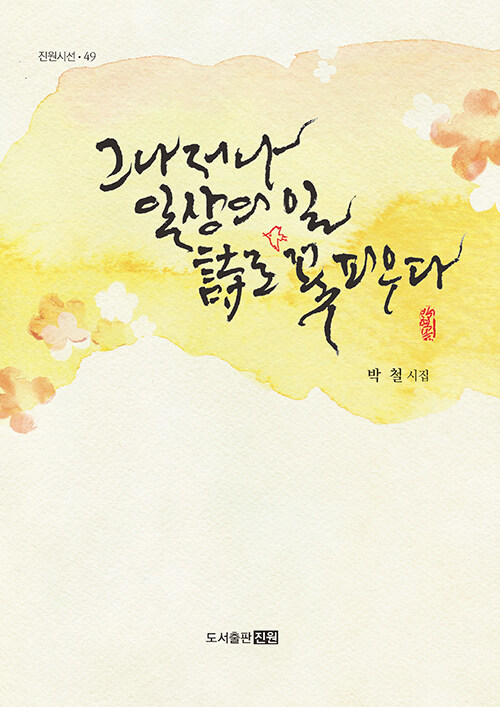 진원시선 · 49
그나저나
일상의 일
詩로 꽃피우다
박 철 시집
도서출판 진원